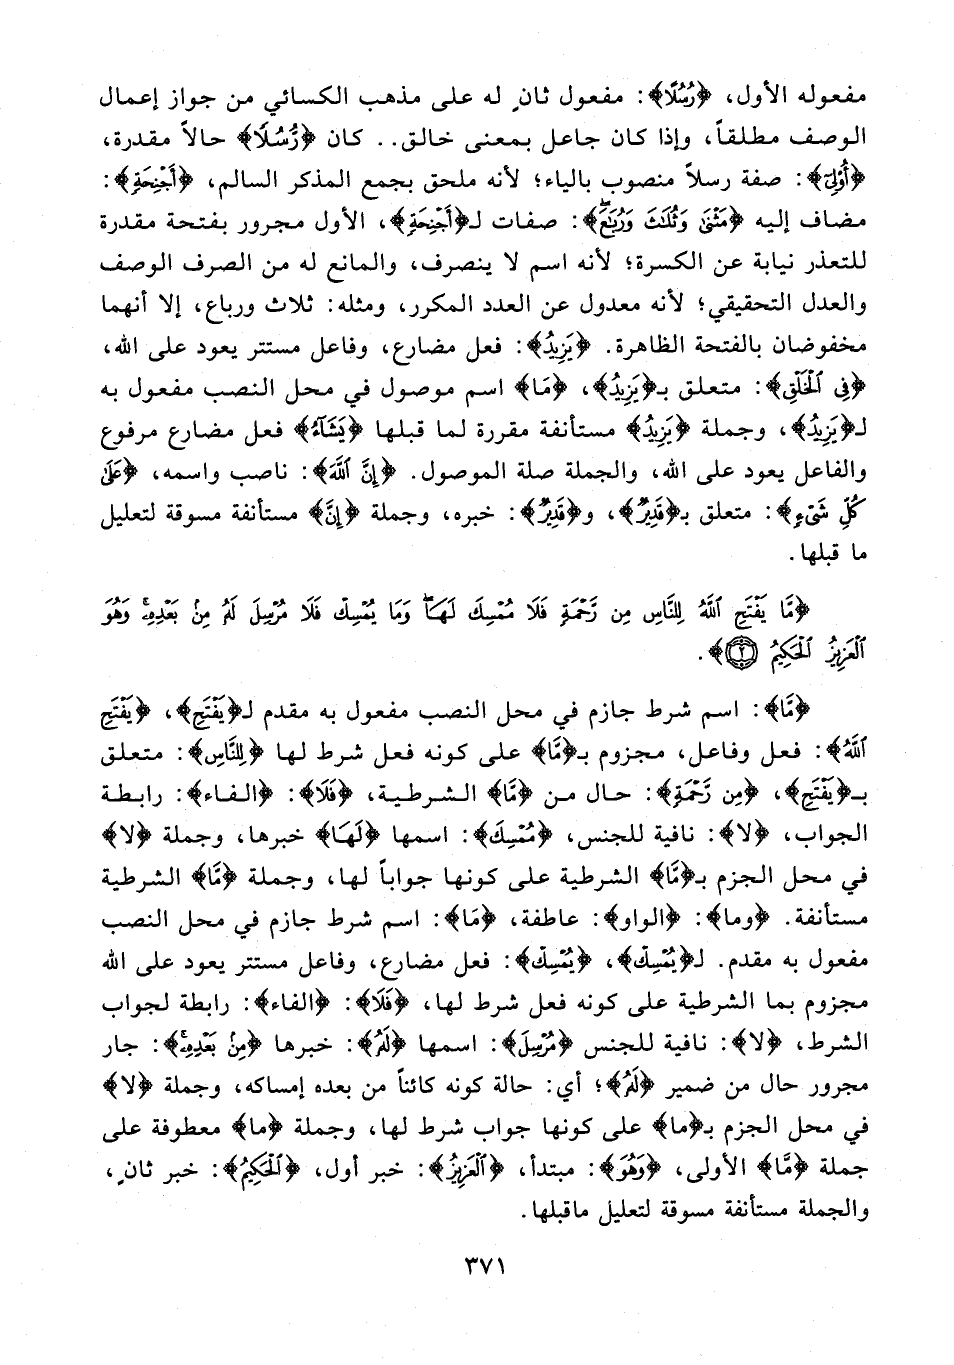 مفعوله الأول، ﴿رُسُلًا﴾: مفعول ثانٍ له على مذهب الكسائي من جواز إعمال
الوصف مطلقاً، وإذا كان جاعل بمعنى خالق.. كان ﴿رُّسُلًا﴾ حالاً مقدرة،
﴿أُوْلِىٓ﴾: صفة رسلاً منصوب بالياء؛ لأنه ملحق بجمع المذكر السالم، ﴿أَجْنِحَةٍ﴾:
مضاف إليه ﴿مَّثْنَىٰ وَثُلَٰثَ وَرُبَٰعَۚ﴾: صفات لـ﴿أَجْنِحَةٍ﴾، الأول مجرور بفتحة مقدرة
للتعذر نيابة عن الكسرة؛ لأنه اسم لا ينصرف، والمانع له من الصرف الوصف
والعدل التحقيقي؛ لأنه معدول عن العدد المكرر، ومثله: ثلاث ورباع، إلا أنهما
مخفوضان بالفتحة الظاهرة. ﴿يَزِيدُ﴾: فعل مضارع، وفاعل مستتر يعود على الله،
﴿فِى ٱلْخَلْقِ﴾: متعلق بـ﴿يَزِيدُ﴾، ﴿مَا﴾ اسم موصول في محل النصب مفعول به
لـ﴿يَزِيدُ﴾، وجملة ﴿يَزِيدُ﴾ مستأنفة مقررة لما قبلها ﴿يَشَآءُ﴾ فعل مضارع مرفوع
والفاعل يعود على الله، والجملة صلة الموصول. ﴿إِنَّ ٱللَّهَ﴾: ناصب واسمه، ﴿عَلَىٰ
كُلِّ شَىْءٍ﴾: متعلق بـ﴿قَدِيرٌ﴾، و﴿قَدِيرٌ﴾: خبره، وجملة ﴿إِنَّ﴾ مستأنفة مسوقة لتعليل
ما قبلها.
﴿مَّا يَفْتَحِ ٱللَّهُ لِلنَّاسِ مِن رَّحْمَةٍ فَلَا مُمْسِكَ لَهَاۖ وَمَا يُمْسِكْ فَلَا مُرْسِلَ لَهُۥ مِنۢ بَعْدِهِۦۚ وَهُوَ
ٱلْعَزِيزُ ٱلْحَكِيمُ ٢﴾.
﴿مَّا﴾: اسم شرط جازم في محل النصب مفعول به مقدم لـ﴿يَفْتَحِ﴾، ﴿يَفْتَحِ
ٱللَّهُ﴾: فعل وفاعل، مجزوم بـ﴿مَّا﴾ على كونه فعل شرط لها ﴿لِلنَّاسِ﴾: متعلق
بـ﴿يَفْتَحِ﴾، ﴿مِن رَّحْمَةٍ﴾: حال من ﴿مَّا﴾ الشرطية، ﴿فَلَا﴾: ﴿الفاء﴾: رابطة
الجواب، ﴿لا﴾: نافية للجنس، ﴿مُمْسِكَ﴾: اسمها ﴿لَهَا﴾ خبرها، وجملة ﴿لا﴾
في محل الجزم بـ﴿مَّا﴾ الشرطية على كونها جواباً لها، وجملة ﴿مَّا﴾ الشرطية
مستأنفة. ﴿وما﴾: ﴿الواو﴾: عاطفة، ﴿مَا﴾: اسم شرط جازم في محل النصب
مفعول به مقدم. لـ﴿يُمْسِكْ﴾، ﴿يُمْسِكْ﴾: فعل مضارع، وفاعل مستتر يعود على الله
مجزوم بما الشرطية على كونه فعل شرط لها، ﴿فَلَا﴾: ﴿الفاء﴾: رابطة لجواب
الشرط، ﴿لا﴾: نافية للجنس ﴿مُرْسِلَ﴾: اسمها ﴿لَهُۥ﴾: خبرها ﴿مِنۢ بَعْدِهِۦۚ﴾: جار
مجرور حال من ضمير ﴿لَهُۥ﴾؛ أي: حالة كونه كائناً من بعده إمساكه، وجملة ﴿لا﴾
في محل الجزم بـ﴿ما﴾ على كونها جواب شرط لها، وجملة ﴿ما﴾ معطوفة على
جملة ﴿مَّا﴾ الأولى، ﴿وَهُوَ﴾: مبتدأ، ﴿ٱلْعَزِيزُ﴾: خبر أول، ﴿ٱلْحَكِيمُ﴾: خبر ثانٍ،
والجملة مستأنفة مسوقة لتعليل ماقبلها.
٣٧١